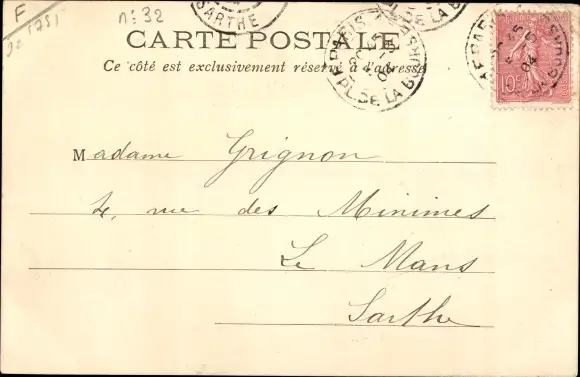 F
n: 32
SARTHE
CARTE POSTALE
Ce côté est exclusivement réservé à l'adresse
PARIS
PL. DE LA BOURSE
04
10
Madame Grignon
4, rue des Minimes
Le Mans
Sarthe